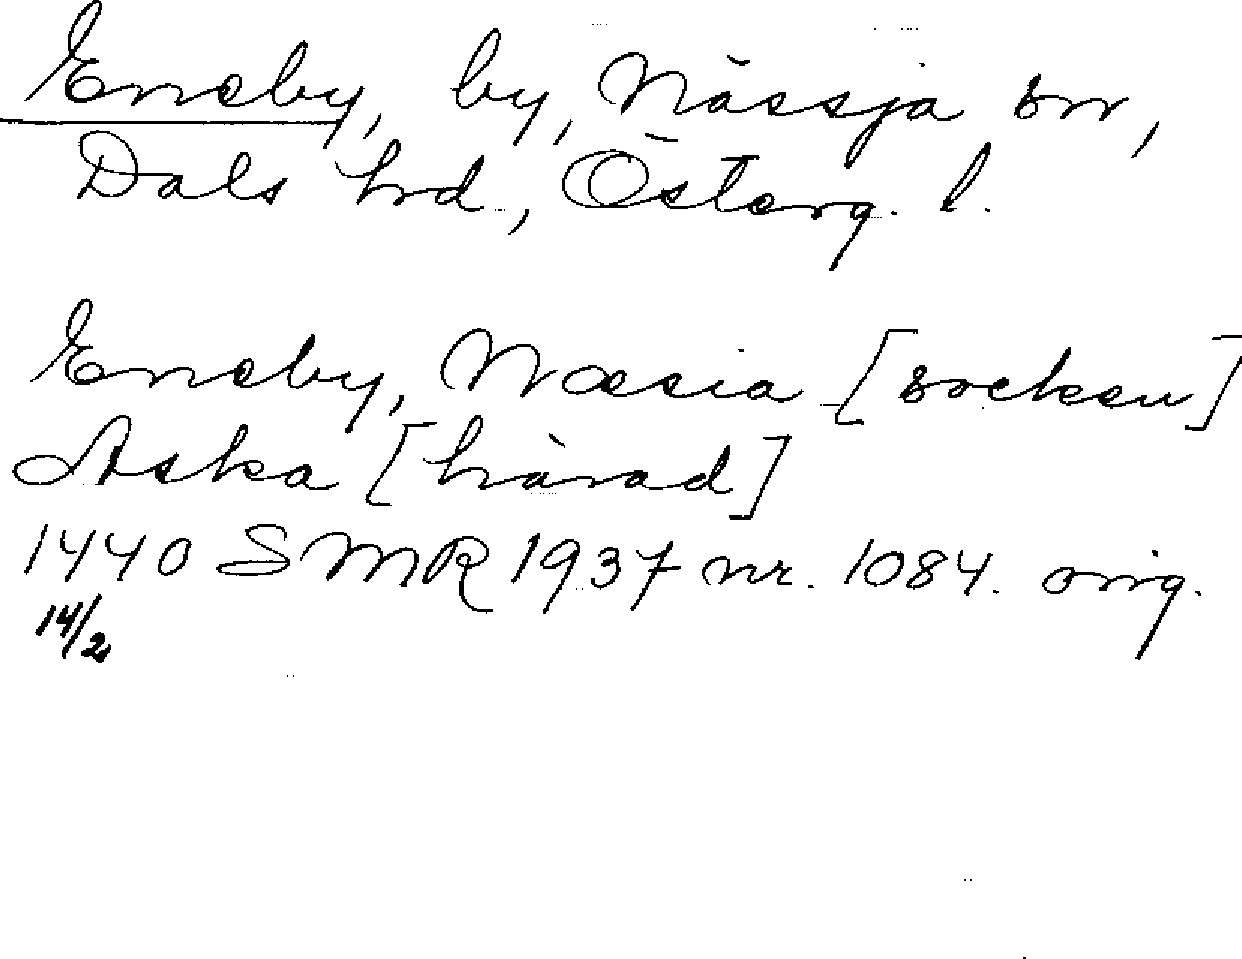 Eneby, by, Nässja sn,
Dals hrd., Österg. l.
Eneby, Næsia [socken]
Aska [härad]
1440 SMR 1937 nr. 1084. orig.
14/2